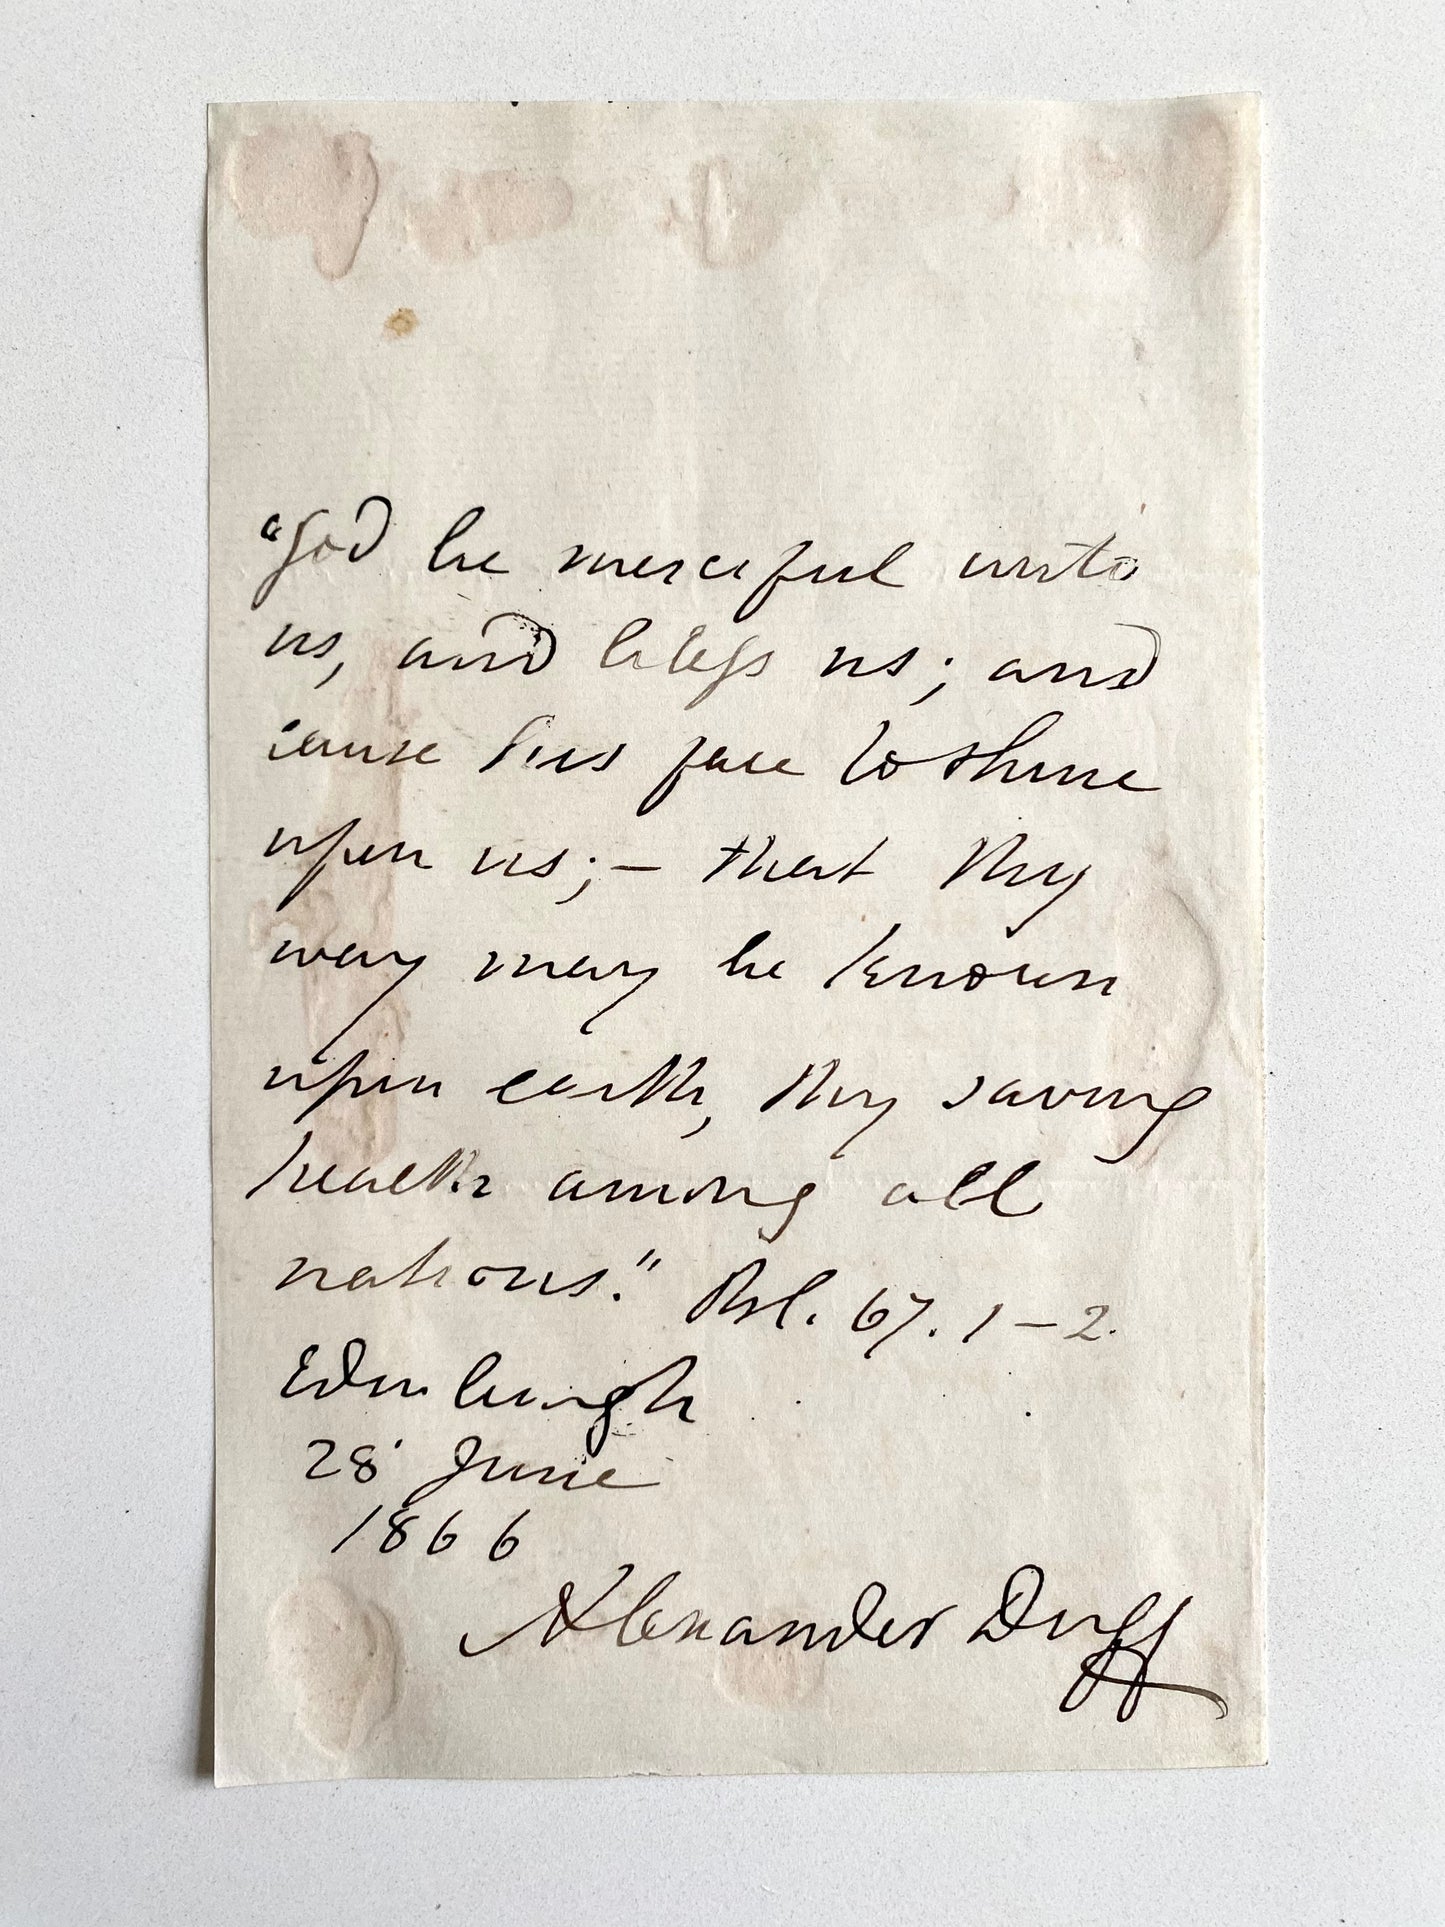 "God be merciful unto
us, and bless us; and
cause his face to shine
upon us; — that thy
way may be known
upon earth, thy saving
health among all
nations." Psl. 67. 1 — 2.
Edinburgh
28 June
1866
Alexander Duff